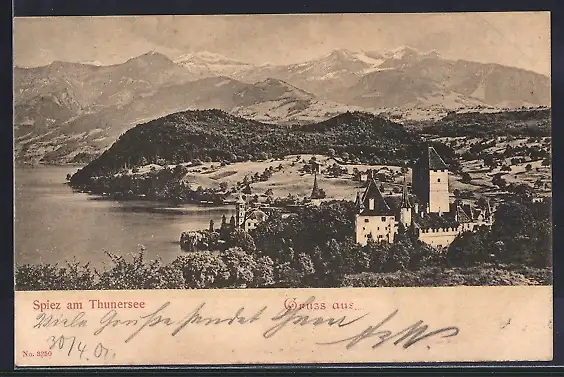 Spiez am Thunersee Gruss aus
Viele Grüße sendet Ihnen
30/4.01.
No. 3250